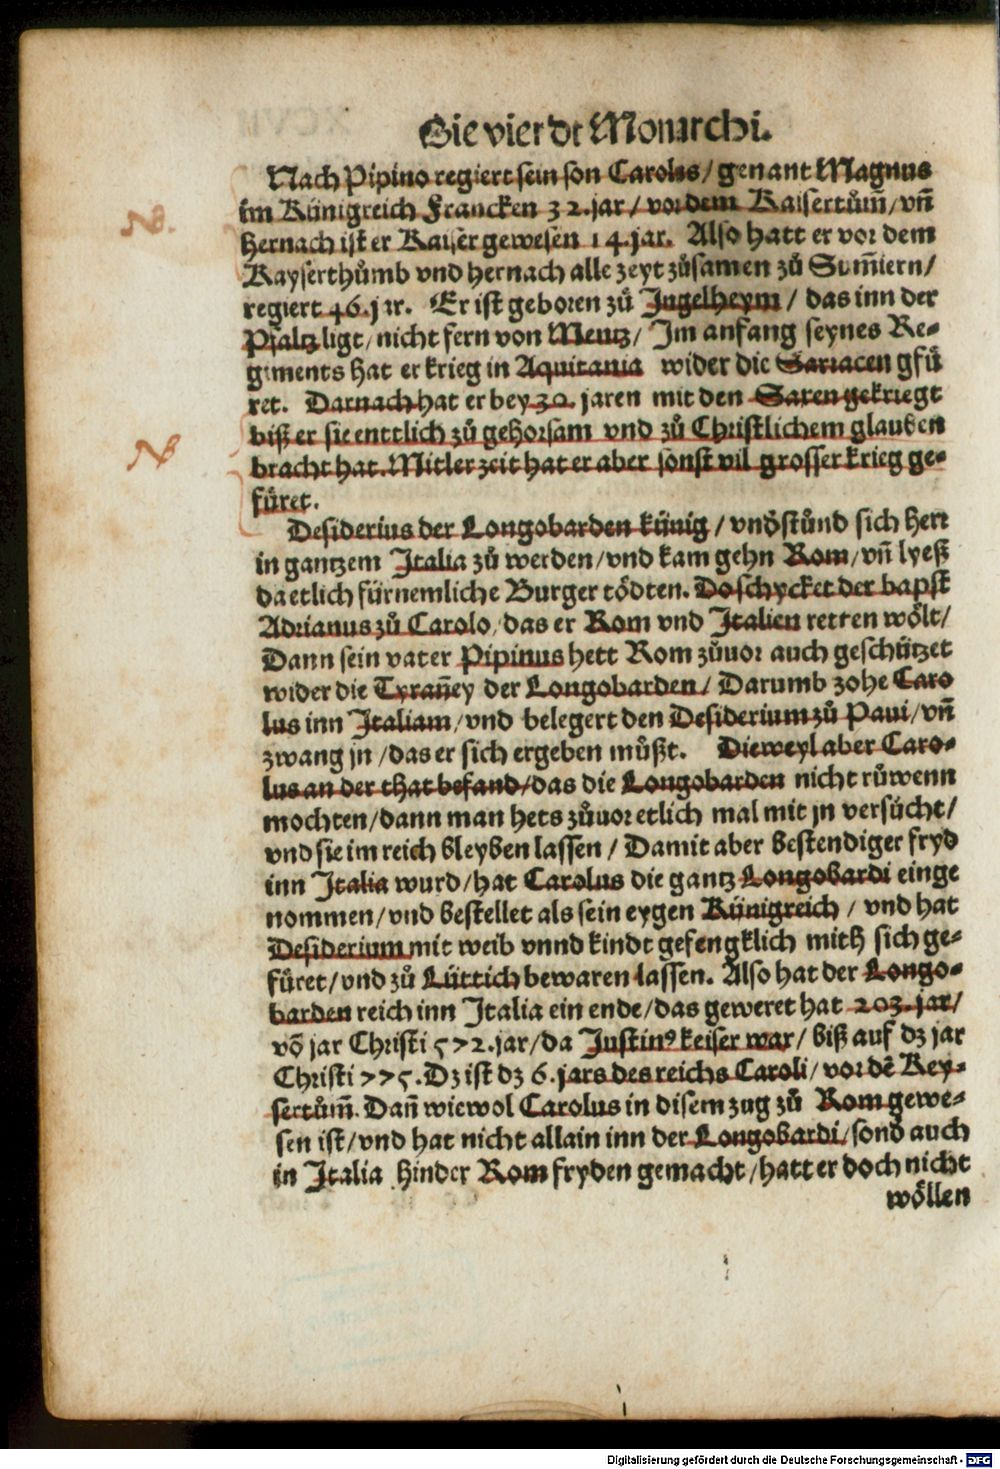 Die vierdt Monarchi.
Nach Pipino regiert sein son Carolus / genant Magnus
im Künigreich Francken 32. jar / vor dem Kaisertům̄ / vn̄
hernach ist er Kaiser gewesen 14. jar. Also hatt er vor dem
Kayserthůmb vnd hernach alle zeyt zůsamen zů Sum̄iern /
regiert 46. jar. Er ist geboren zů Ingelheym / das inn der
Pfaltz ligt / nicht fern von Mentz / Im anfang seynes Re-
giments hat er krieg in Aquitania wider die Sarracen gfü
ret. Darnach hat er bey 30. jaren mit den Saxen gekriegt
biß er sie enttlich zů gehorsam vnd zů Christlichem glauben
bracht hat. Mitler zeit hat er aber sonst vil grosser krieg ge-
füret.
Desiderius der Longobarden künig / vndstůnd sich herr
in gantzem Italia zů werden / vnd kam gehn Rom / vn̄ lyeß
da etlich fürnemliche Burger tödten. Do schycket der bapst
Adrianus zů Carolo / das er Rom vnd Italien retten wölt /
Dann sein vater Pipinus hett Rom zůuor auch geschützet
wider die Tyran̄ey der Longobarden / Darumb zohe Caro
lus inn Italiam / vnd belegert den Desiderium zů Paui / vn̄
zwang jn / das er sich ergeben müßt. Dieweyl aber Caro-
lus an der that befand / das die Longobarden nicht růwenn
mochten / dann man hets zůuor etlich mal mit jn versücht /
vnd sie im reich bleyben lassen / Damit aber bestendiger fryd
inn Italia wurd / hat Carolus die gantz Longobardi einge
nommen / vnd bestellet als sein eygen Künigreich / vnd hat
Desiderium mit weib vnnd kindt gefengklich mith sich ge-
füret / vnd zů Lüttich bewaren lassen. Also hat der Longo-
barden reich inn Italia ein ende / das geweret hat 203. jar /
vō jar Christi 572. jar / da Justin⁹ keiser war / biß auf dz jar
Christi 775. Dz ist dz 6. jars des reichs Caroli / vor dē Key-
sertům̄. Dan̄ wiewol Carolus in disem zug zů Rom gewe-
sen ist / vnd hat nicht allain inn der Longobardi / sond auch
in Italia hinder Rom fryden gemacht / hatt er doch nicht
wöllen
Digitalisierung gefördert durch die Deutsche Forschungsgemeinschaft - DFG